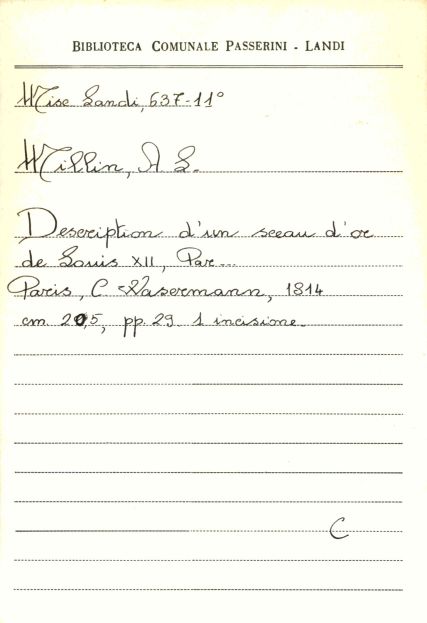 BIBLIOTECA COMUNALE PASSERINI - LANDI
Misc Landi, 637-11°
Millin, A L.
Description d'un sceau d'or
de Louis XII, Par...
Paris, C Wasermann, 1814
cm. 20,5, pp. 29 1 incisione.
C